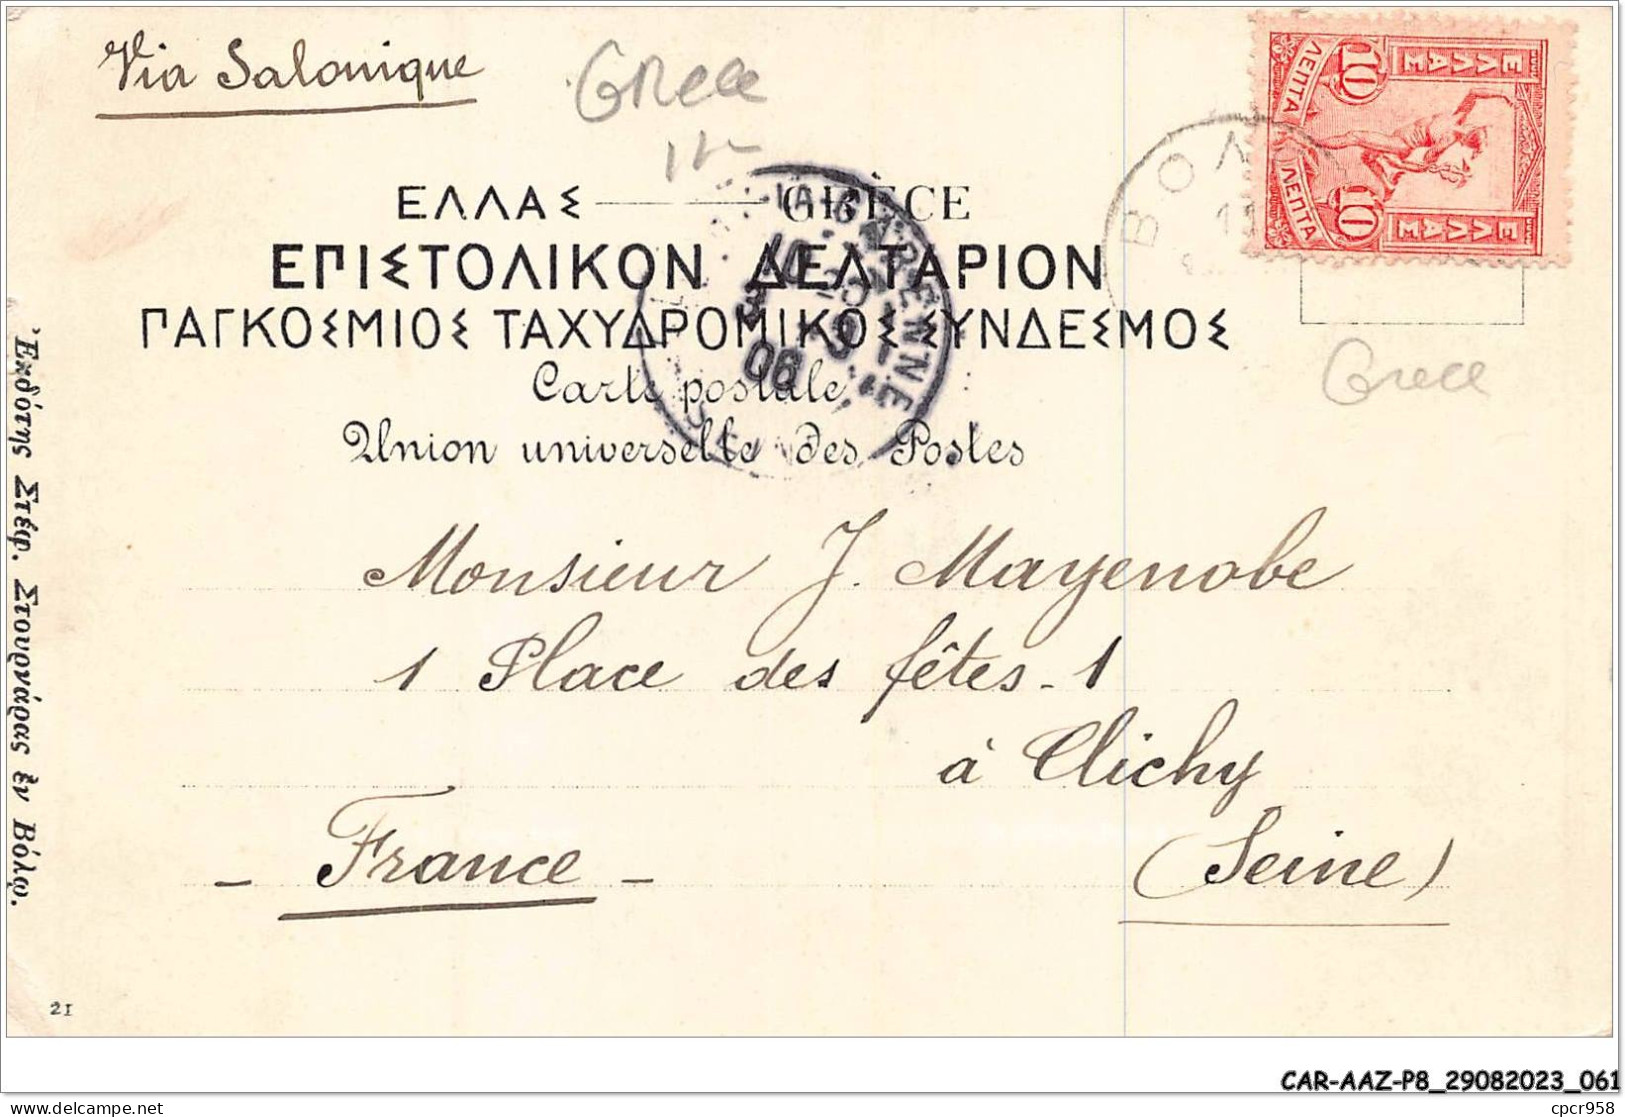 Via Salonique
Grece
ΕΛΛΑΣ
10 ΛΕΠΤΑ
ΛΕΠΤΑ 10
ΕΛΛΑΣ
ΒΟΛ
11
ΕΛΛΑΣ — GRÈCE
ΕΠΙΣΤΟΛΙΚΟΝ ΔΕΛΤΑΡΙΟΝ
ΠΑΓΚΟΣΜΙΟΣ ΤΑΧΥΔΡΟΜΙΚΟΣ ΣΥΝΔΕΣΜΟΣ
Carte postale
Union universelle des Postes
LA GARENNE
06
Grece
Monsieur J. Mayenobe
1 Place des fêtes - 1
à Clichy
- France -
(Seine)
Ἐκδότης Στέφ. Στουρνάρας ἐν Βόλῳ.
21
CAR-AAZ-P8_29082023_061
cpcr958